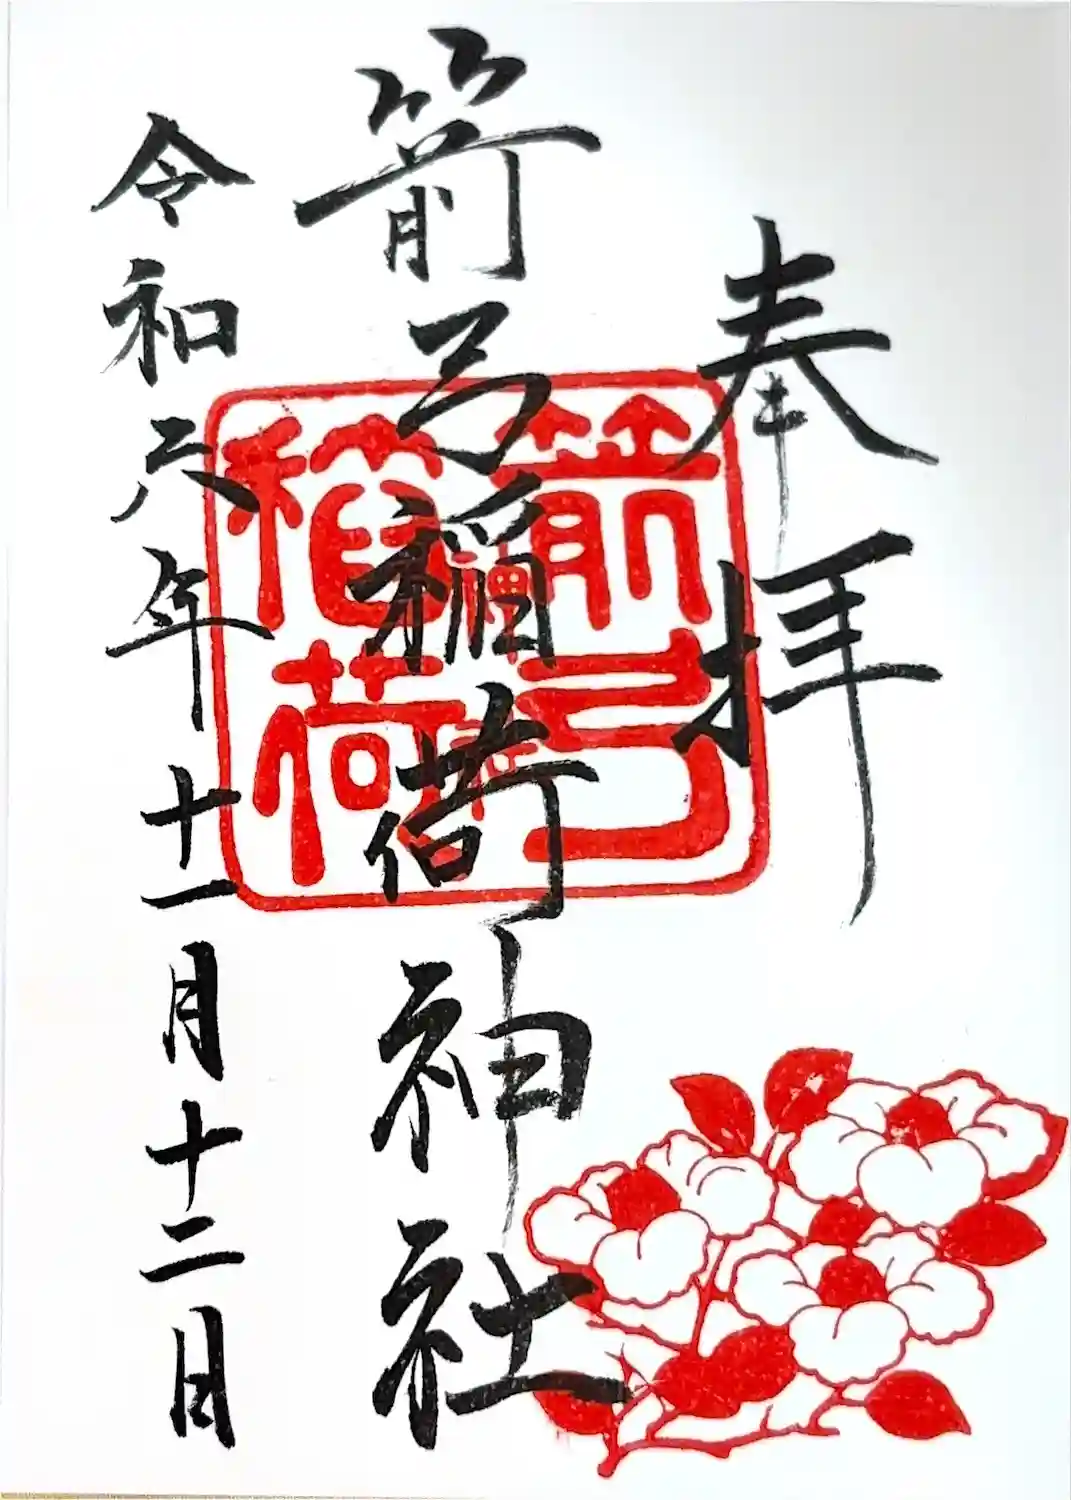 奉拝
箭弓稲荷神社
箭弓稲荷
令和六年十一月十二日